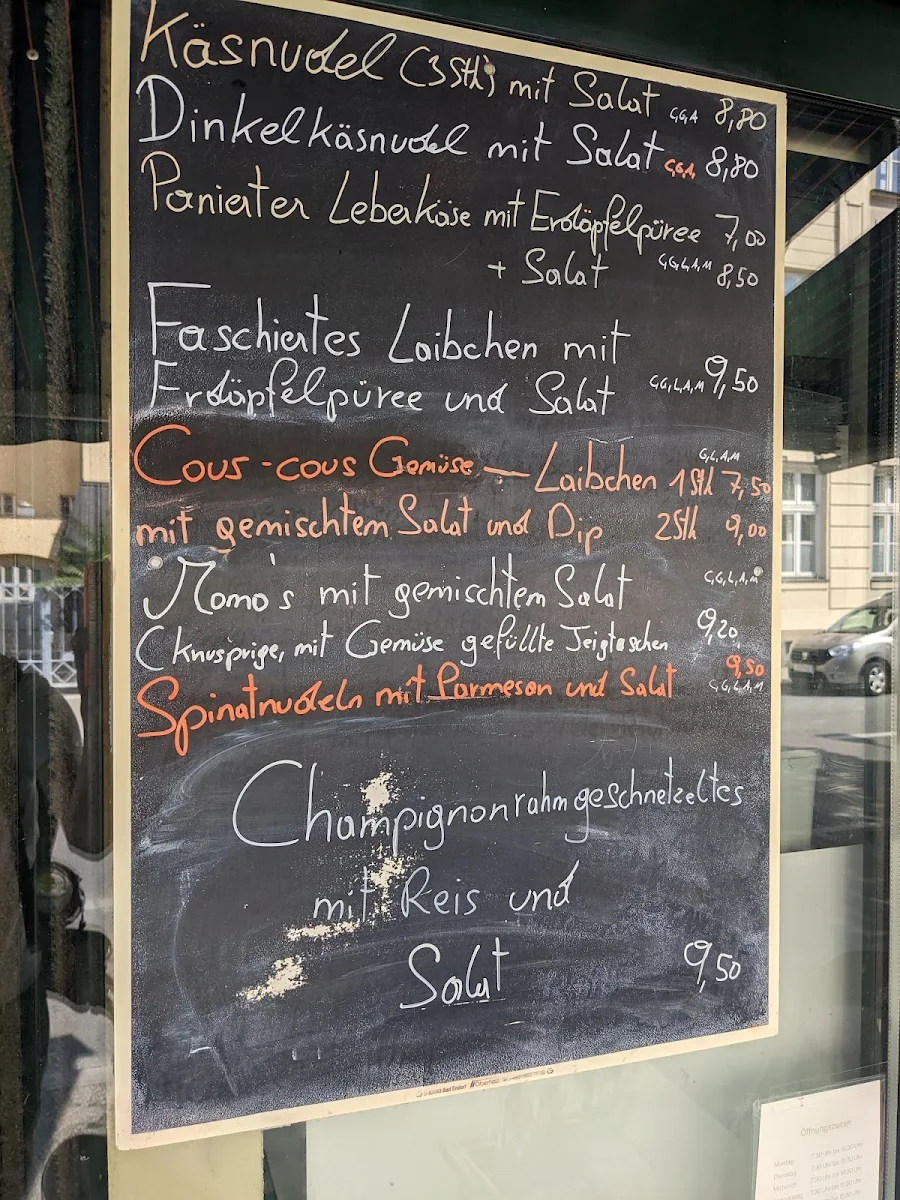 Käsnudel (3 Stk) mit Salat C,G,A 8,80
Dinkelkäsnudel mit Salat C,G,A 8,80
Panierter Leberkäse mit Erdäpfelpüree 7,00
+ Salat C,G,L,A,M 8,50
Faschiertes Laibchen mit
Erdäpfelpüree und Salat C,G,L,A,M 9,50
Cous-cous Gemüse — Laibchen 1 Stk 7,50 G,L,A,M
mit gemischtem Salat und Dip 2 Stk 9,00
Momo's mit gemischtem Salat C,G,L,A,M
(Knusprige, mit Gemüse gefüllte Teigtaschen 9,20
Spinatnudeln mit Parmesan und Salat 9,50
C,G,L,A,M
Champignonrahmgeschnetzeltes
mit Reis und
Salat 9,50
Öffnungszeiten
Montag
Dienstag
Mittwoch